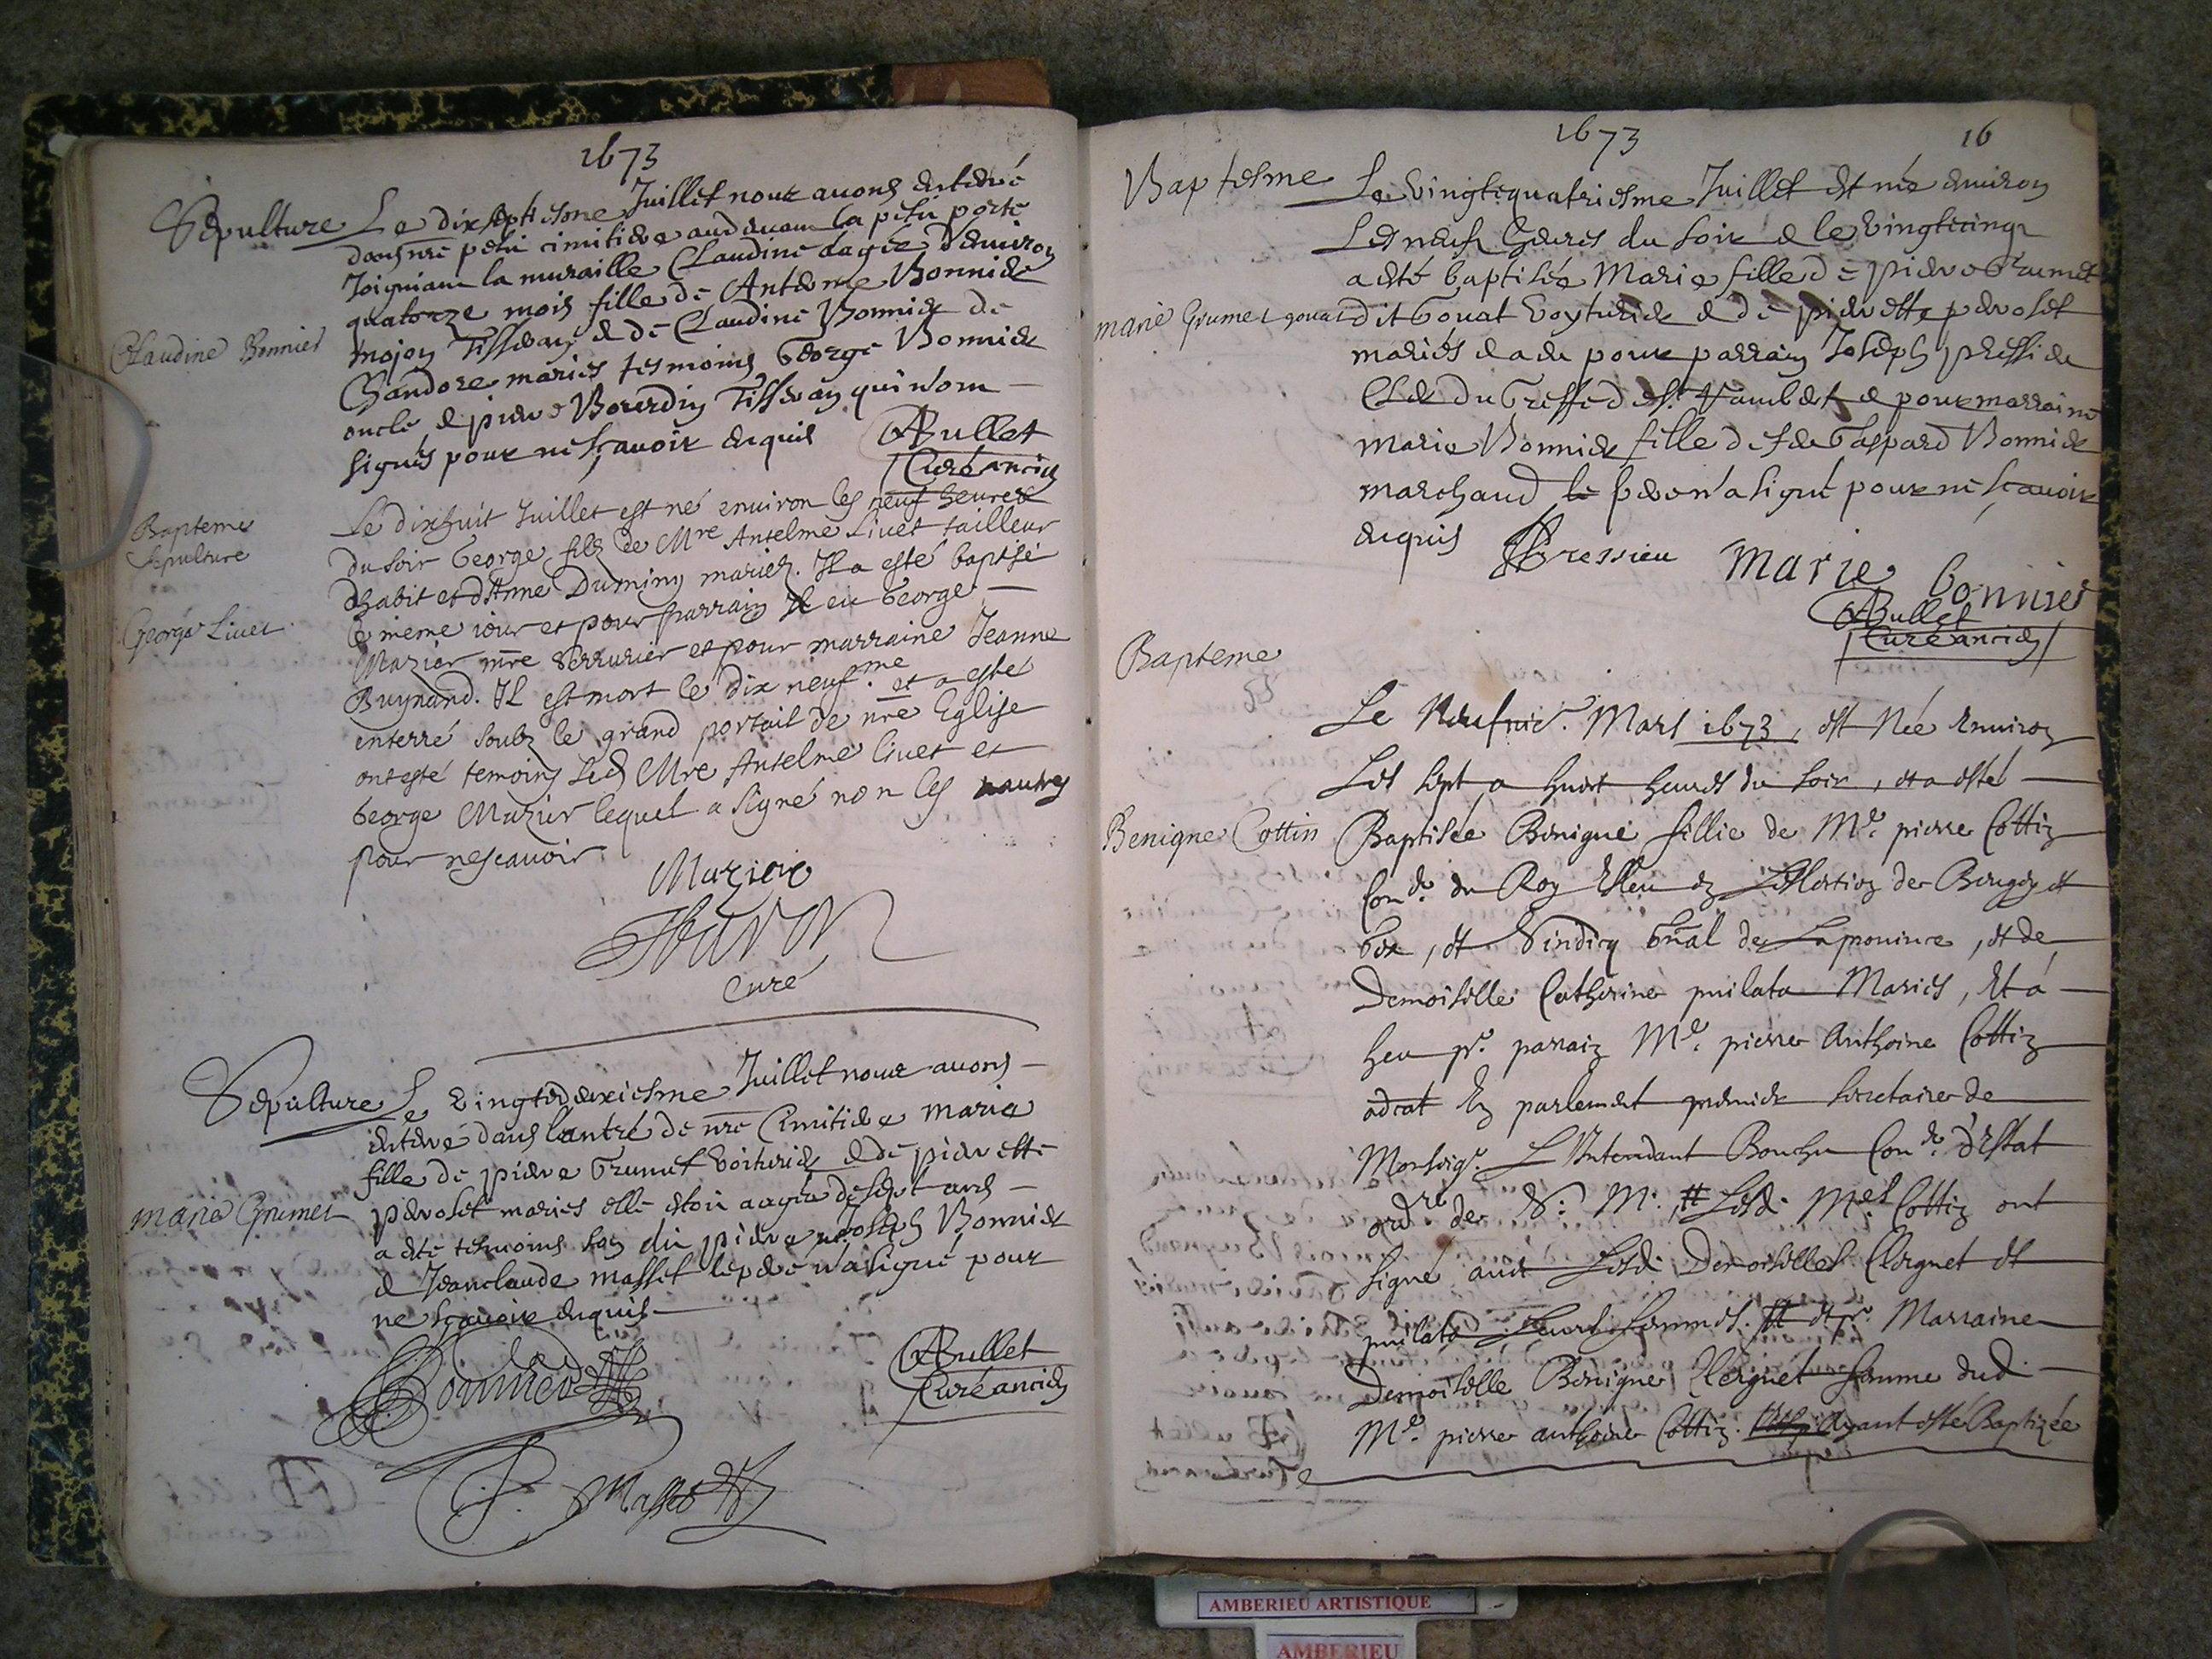 1673
Sepulture Le dixseptiesme Juillet nous avons enterré
dans nre petit cimitiere audevant la petite porte
Joigniant la muraille Claudine aagée d'environ
quatorze mois fille de Anterme Bonnier
Claudine Bonnier
mojon Tisseran & de Claudine Bonnier de
Chandore mariés tesmoins George Bonnier
oncle & piere Bourdin Tisseran qui n'ont
signés pour ne sçavoir enquis
ABullet
Curé ancien
Bapteme
Sepulture
Le dixhuit Juillet est né environ les neuf heures
du soir George fils de Mre Antelme Livet tailleur
d'habit et d'Anne Duminy mariez. Il a esté baptisé
George Livet
le même iour et pour parrain Il eu George
Mazier mre Serrurier et pour marraine Jeanne
Buynand. Il est mort le dix neufme et a esté
enterré soubz le grand portail de nre Eglise
ont esté temoins Led Mre Antelme livet et
George Mazier lequel a signé non les autres
pour ne scavoir
Mazier
Curé
Sepulture Le vingtedeuxiesme Juillet nous avons
enterré dans l'antré de nre Cimitiere Marie
fille de piere Grumet voiturier & de pierette
marie Grumet
pervolet mariés elle estoit aagée de sept ans
a esté tesmoins led piere Joseph Bonnier
& Jeanclaude Masset le pere n'a signé pour
ne sçavoir enquis
Bonnier
ABullet
Curé ancien
Masset
1673
16
Baptesme Le vingtequatriesme Juillet est née environ
Les neuf heures du soir & le vingtecinq
a esté baptisée Marie fille de piere Grumet
marie Grumet gouat
dit Gouat voyturier & de pierette pervolet
mariés & a eu pour parrain Joseph pressieu
Clerc du Greffe de St Rambert & pour marraine
Marie Bonnier fille de feu Gaspard Bonnier
marchand le pere n'a signé pour ne sçavoir
enquis
Pressieu
Marie bonnier
ABullet
Curé ancien
Bapteme
Le Neufvie. Mars 1673, est Née Environ
Les sept a huict heures du soir, et a esté
Benigne Cottin
Baptisée Benigne fillie de Me. pierre Cottin
Conser. du Roy Esleu en L'Eslection de Beugey et
Gex, et Sindicq Gnal de La province, et de
Demoiselle Catherine puilata Mariés, Et a
heu pr. parrain Me. pierre Anthoine Cottin
adcat En parlement premier secretaire de
Monseigr. L'Intendant Bouchu Conser. d'Estat
ordre de S. M. # Lesd. Mes. Cottin ont
signé avec Lesd. Demoiselles Clerguet et
puilata Leurs femmes. # et pr. Marraine
Demoiselle Benigne Clerguet femme dud
Me. pierre anthoine Cottin. Ayant esté Baptizée
AMBERIEU ARTISTIQUE
AMBERIEU